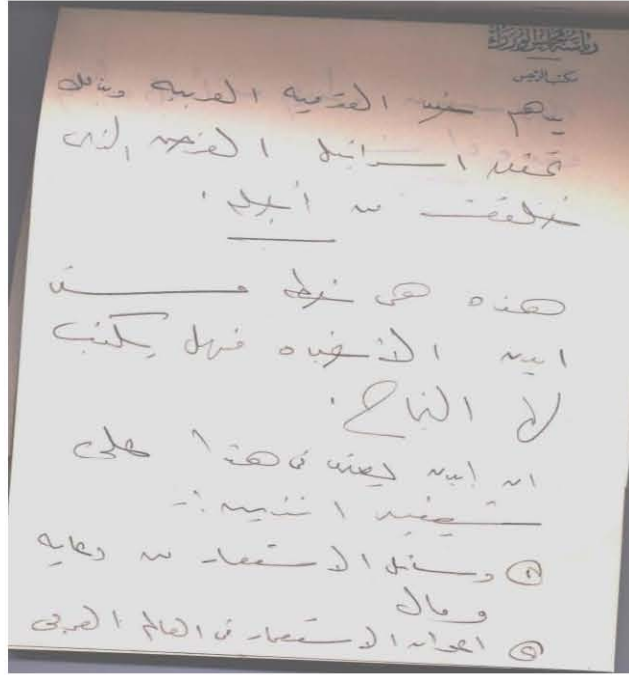 رئاسة مجلس الوزراء
مكتب الرئيس
القومية العربية وبذلك
تحقق اسرائيل الغرض الذى
خلقت من أجله .
هذه هى خطة
ايدن الأخيرة فهل يكتب
لها النجاح .
ان ايدن يعتمد فى هذا على
:-
① وسائل الاستعمار من دعاية
ومال
② اعوان الاستعمار فى العالم العربى